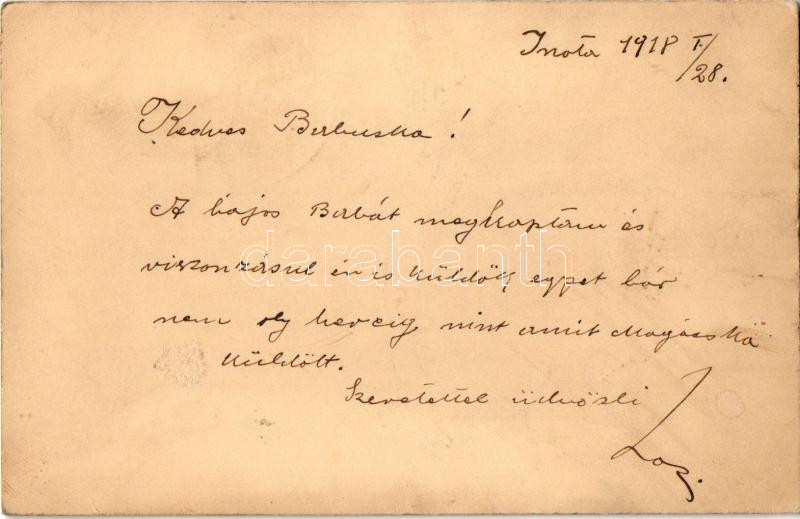 Inota 1918 I/28.
Kedves Babuska!
A bájos Babát megkaptam és
viszonzásul én is küldök egyet bár
nem oly herzig, mint amit Magácska
küldött.
Szeretettel üdvözli
darabanth